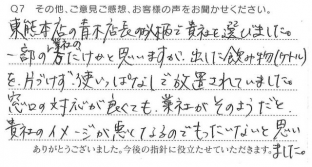 Q7 その他、ご意見ご感想、お客様の声をお聞かせください。
東熊本店の青木店長の人柄で貴社を選びました。
業社の
一部の方だけかと思いますが、出した飲み物(ケトル)
を片づけず使いっぱなしで放置されていました。
窓口の対応が良くても、業社がそのようだと、
貴社のイメージが悪くなるのでもったいないと思い
ました。
ありがとうございました。今後の指針に役立たせていただきます。